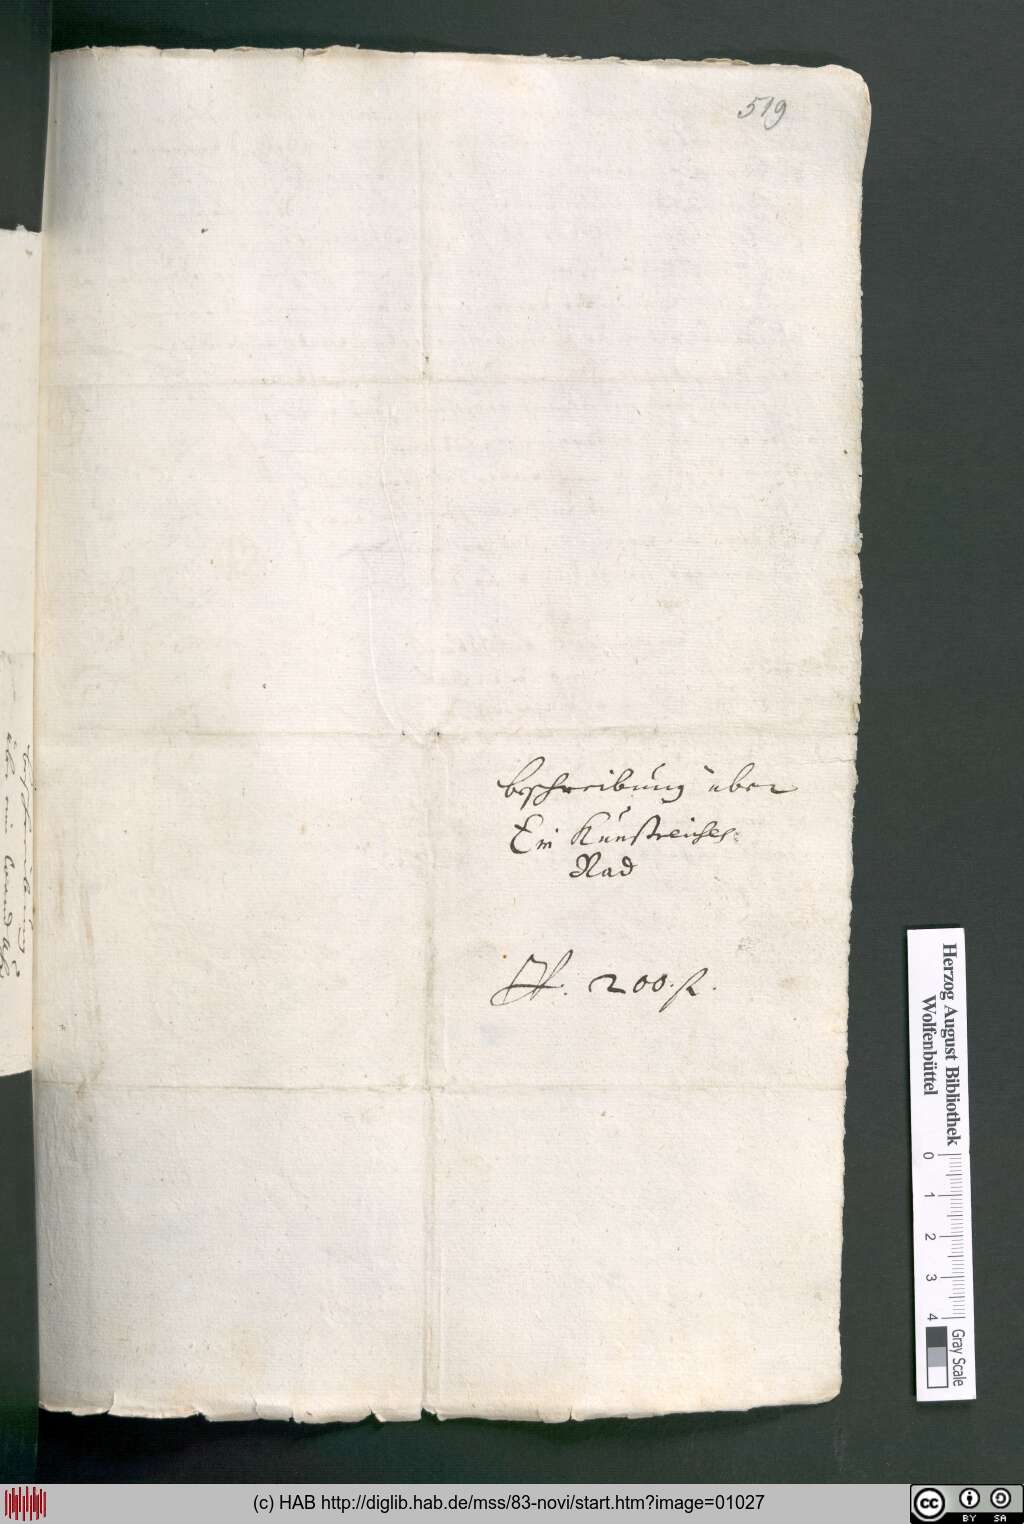 519
beschreibung über
Ein Kunstreiches
Rad
200. fl.
Herzog August Bibliothek
Wolfenbüttel
0 1 2 3 4
Gray Scale
(c) HAB http://diglib.hab.de/mss/83-novi/start.htm?image=01027
cc BY SA